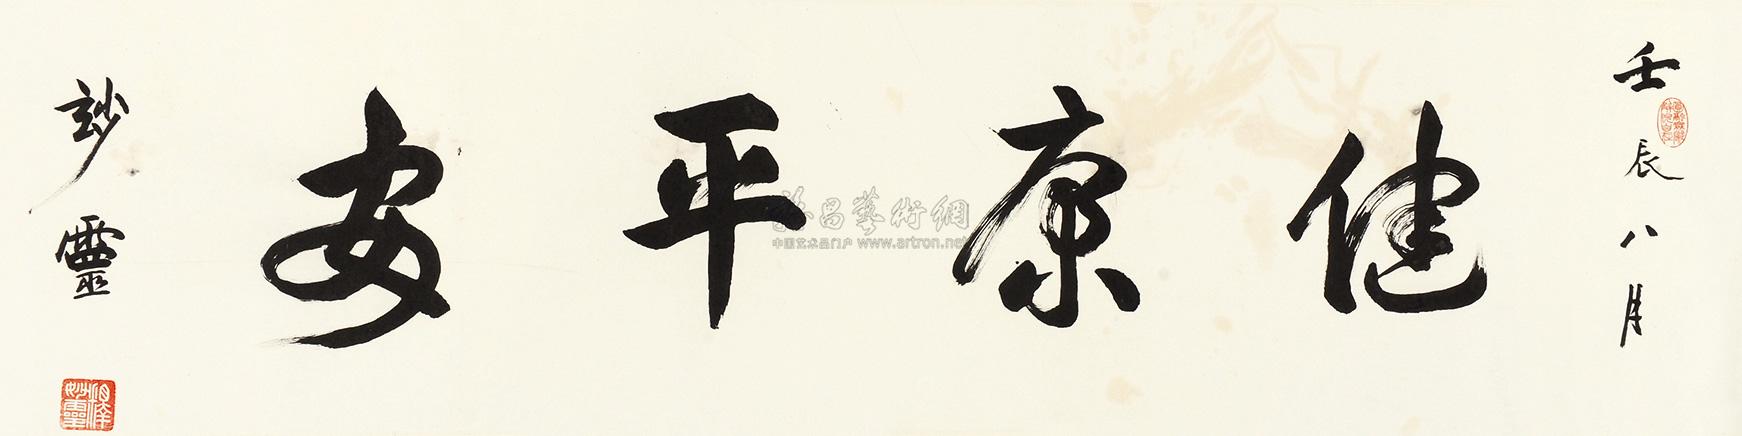 壬辰八月
健康平安
玅靈
藝術網
中国艺术品门户 www.artron.net